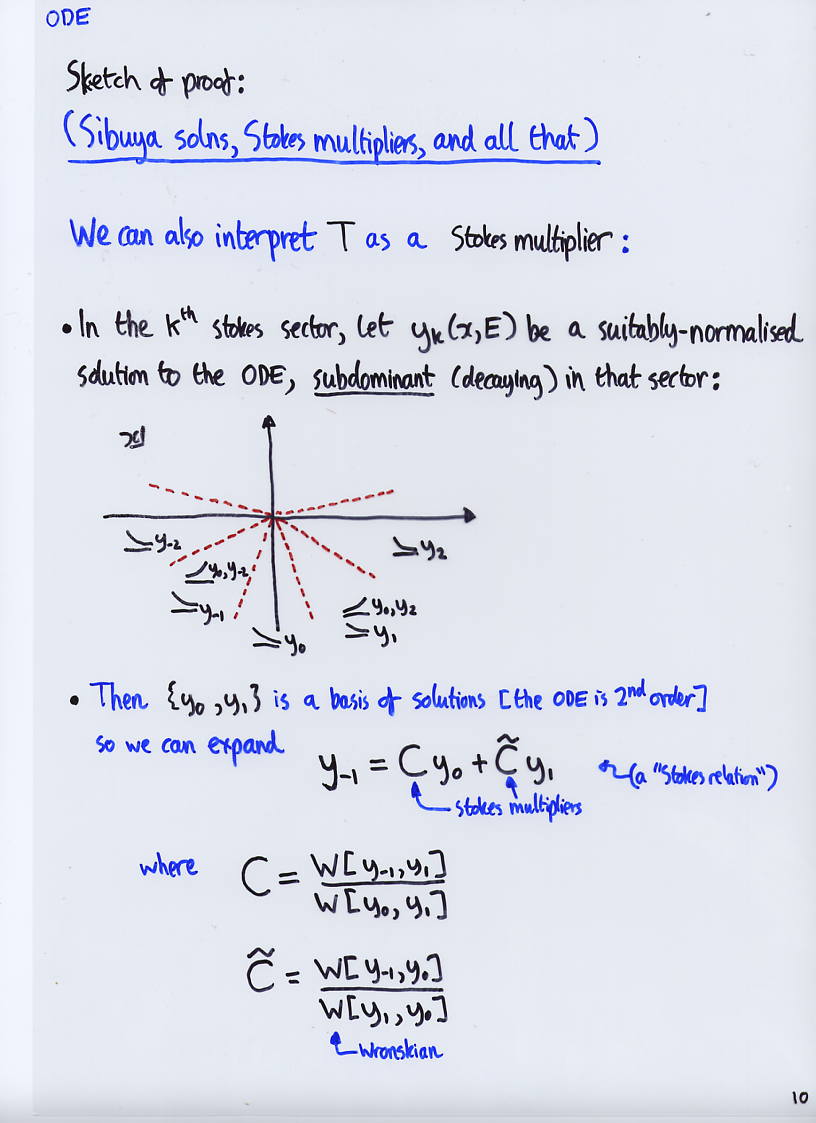 ODE
Sketch of proof:
(Sibuya solns, Stokes multipliers, and all that)
We can also interpret T as a Stokes multiplier:
• In the kᵗʰ stokes sector, let yₖ(x,E) be a suitably-normalised
solution to the ODE, subdominant (decaying) in that sector:
x
y₋₂
y₂
y₀,y₋₂
y₋₁
y₀,y₂
y₁
y₀
• Then {y₀,y₁} is a basis of solutions [the ODE is 2ⁿᵈ order]
so we can expand
y₋₁ = C y₀ + C̃ y₁
(a "Stokes relation")
Stokes multipliers
where
C = W[y₋₁,y₁] / W[y₀,y₁]
C̃ = W[y₋₁,y₀] / W[y₁,y₀]
Wronskian
10